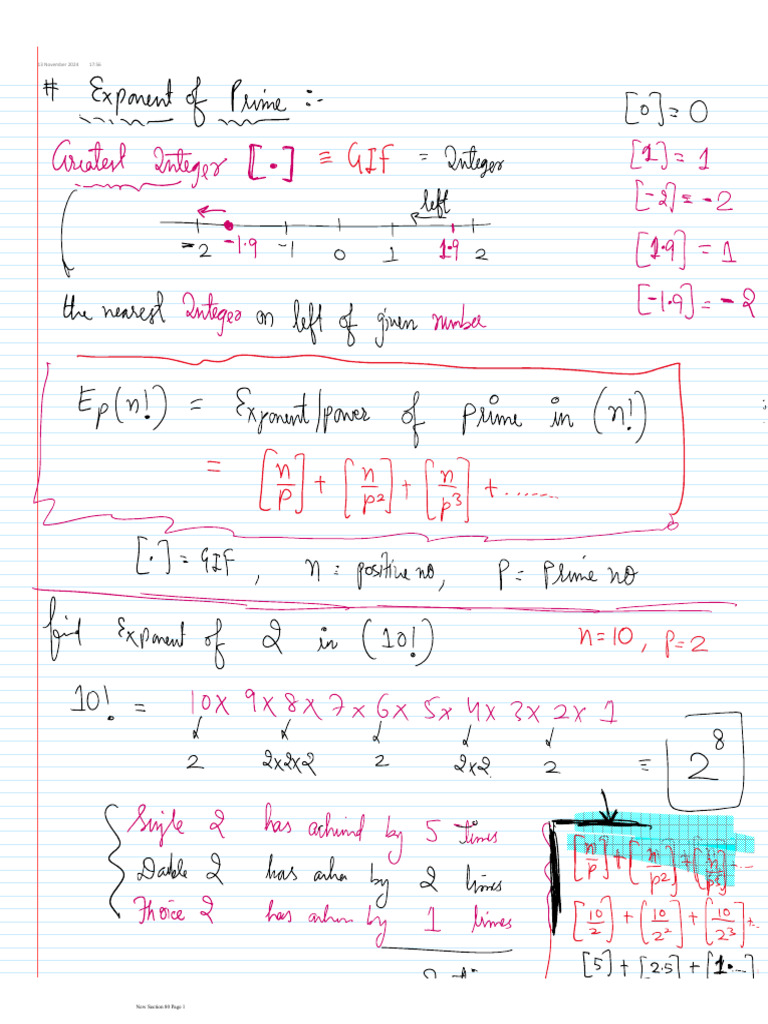 13 November 2024 17:56
# Exponent of Prime :-
[0] = 0
Greatest Integer [•] ≡ GIF = Integer
[1] = 1
[-2] = -2
left
-2 -1.9 -1 0 1 1.9 2
[1.9] = 1
[-1.9] = -2
the nearest Integer on left of given number
Ep(n!) = Exponent/power of prime in (n!)
= [n/p] + [n/p²] + [n/p³] + .......
[•] = GIF, n = positive no, p = prime no
find Exponent of 2 in (10!) n=10, p=2
10! = 10 x 9 x 8 x 7 x 6 x 5 x 4 x 3 x 2 x 1
2 2x2x2 2 2x2 2 = 2⁸
Single 2 has by 5 times
2 has by 2 times
Thrice 2 has by 1 times
[n/p] + [n/p²] + [n/p³] ....
[10/2] + [10/2²] + [10/2³] + ...
[5] + [2.5] + [1. ...
New Section 89 Page 1